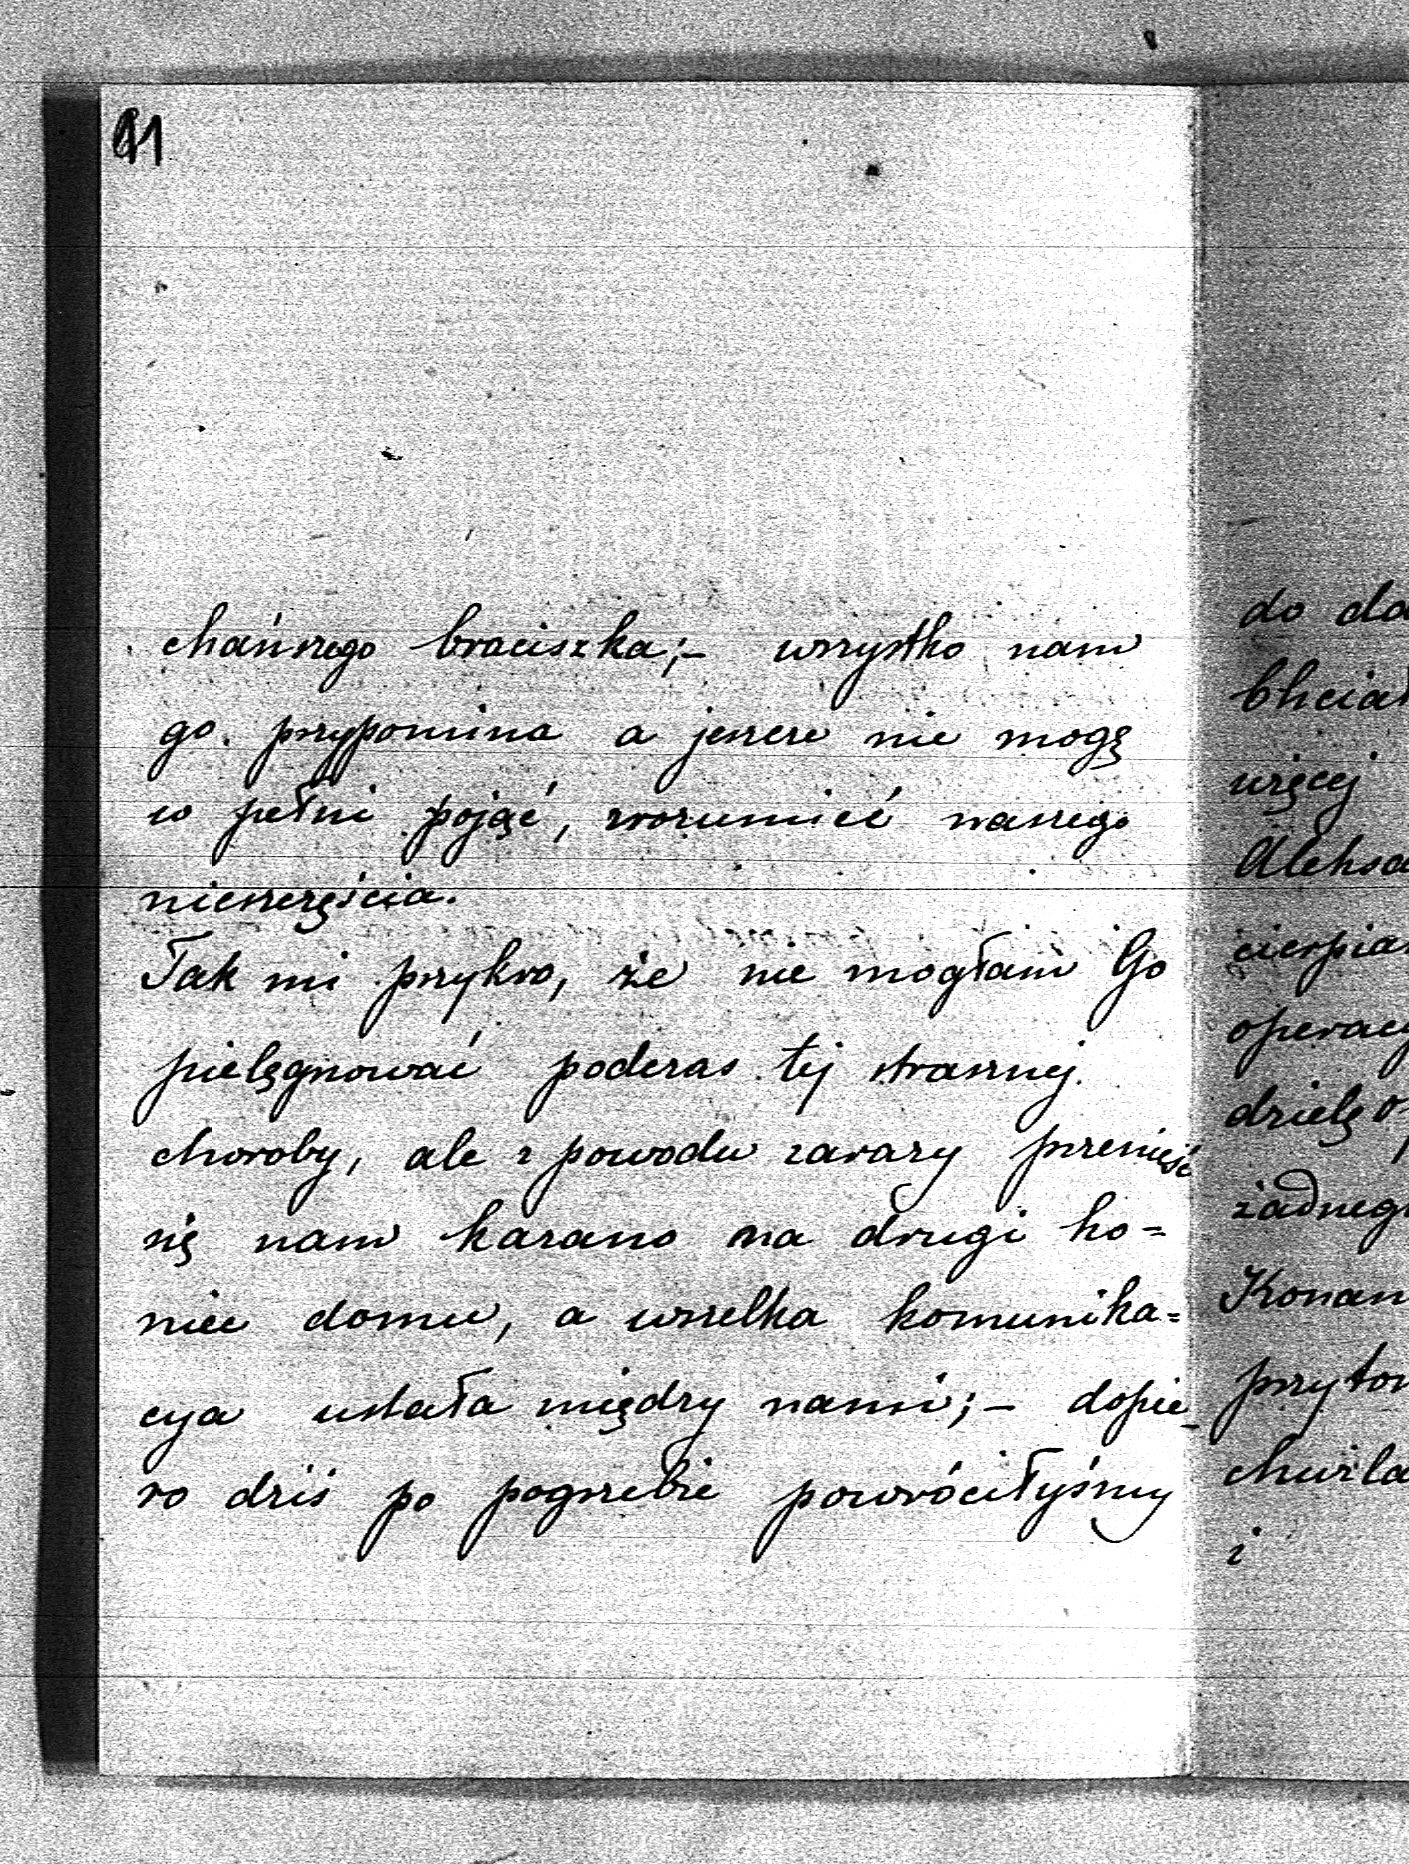 91
chańszego braciszka;– wszystko nam
go przypomina a jeszcze nie mogę
w pełni pojąć, zrozumieć naszego
nieszczęścia.
Tak mi przykro, że nie mogłam Go
pielęgnować podczas tej strasznej
choroby, ale z powodu zarazy przenieść
się nam kazano na drugi ko=
niec domu, a wszelka komunika=
cya ustała między nami;– dopie_
ro dziś po pogrzebie powróciłyśmy
do do
Chciał
więcej
Aleksa
cierpia
operacy
dzielę o
żadneg
Konan
przyto
chwila
i